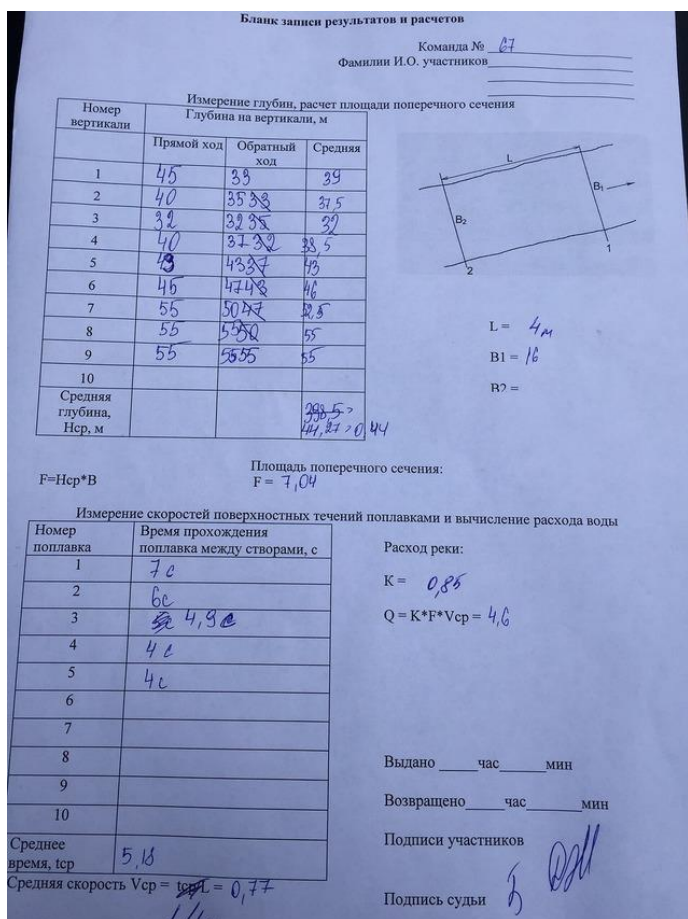 Бланк записи результатов и расчетов
Команда № 67
Фамилии И.О. участников
Измерение глубин, расчет площади поперечного сечения
Номер вертикали Глубина на вертикали, м
Прямой ход Обратный ход Средняя
1 45 33 39
2 40 35 33 37,5
3 32 32 35 32
4 40 37 32 38,5
5 43 43 37 43
6 45 47 43 46
7 55 50 47 52,5
8 55 55 50 55
9 55 55 55 55
10
Средняя глубина, Нср, м 398,5 = 44,27 = 0,44
L
B1
B2
1
2
L = 4 м
B1 = 16
B2 =
Площадь поперечного сечения:
F=Hср*B F = 7,04
Измерение скоростей поверхностных течений поплавками и вычисление расхода воды
Номер поплавка Время прохождения поплавка между створами, с
1 7 с
2 6с
3 4,9 с
4 4 с
5 4 с
6
7
8
9
10
Среднее время, tср 5,18
Средняя скорость Vср = tср/L = 0,77
Расход реки:
К = 0,85
Q = K*F*Vср = 4,6
Выдано _____час______мин
Возвращено_____час______мин
Подписи участников
Подпись судьи